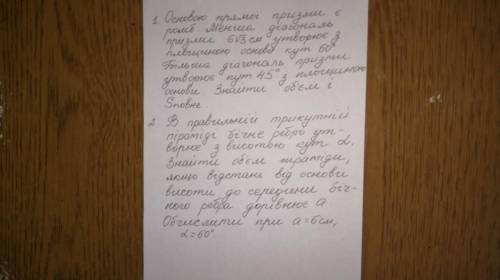 1. Основою прямої призми є
ромб. Менша діагональ
призми 6√3 см утворює з
площиною основи кут 60°
Більша діагональ призми
утворює кут 45° з площиною
основи. Знайти обєм і
Sповне.
2. В правильній трикутній
піраміді бічне ребро ут-
ворює з висотою кут α.
Знайти обєм піраміди,
якщо відстань від основи
висоти до середини біч-
ного ребра дорівнює а
Обчислити при а=6см,
α=60°